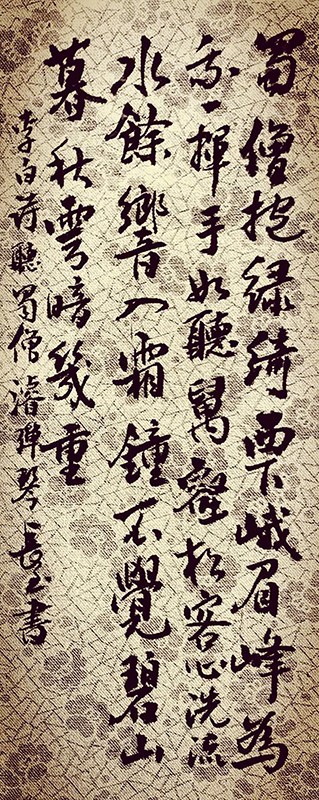 蜀僧抱綠綺西下峨眉峰為
我一揮手如聽萬壑松客心洗流
水餘響入霜鐘不覺碧山
暮秋雲暗幾重
李白詩聽蜀僧濬彈琴 長玉書